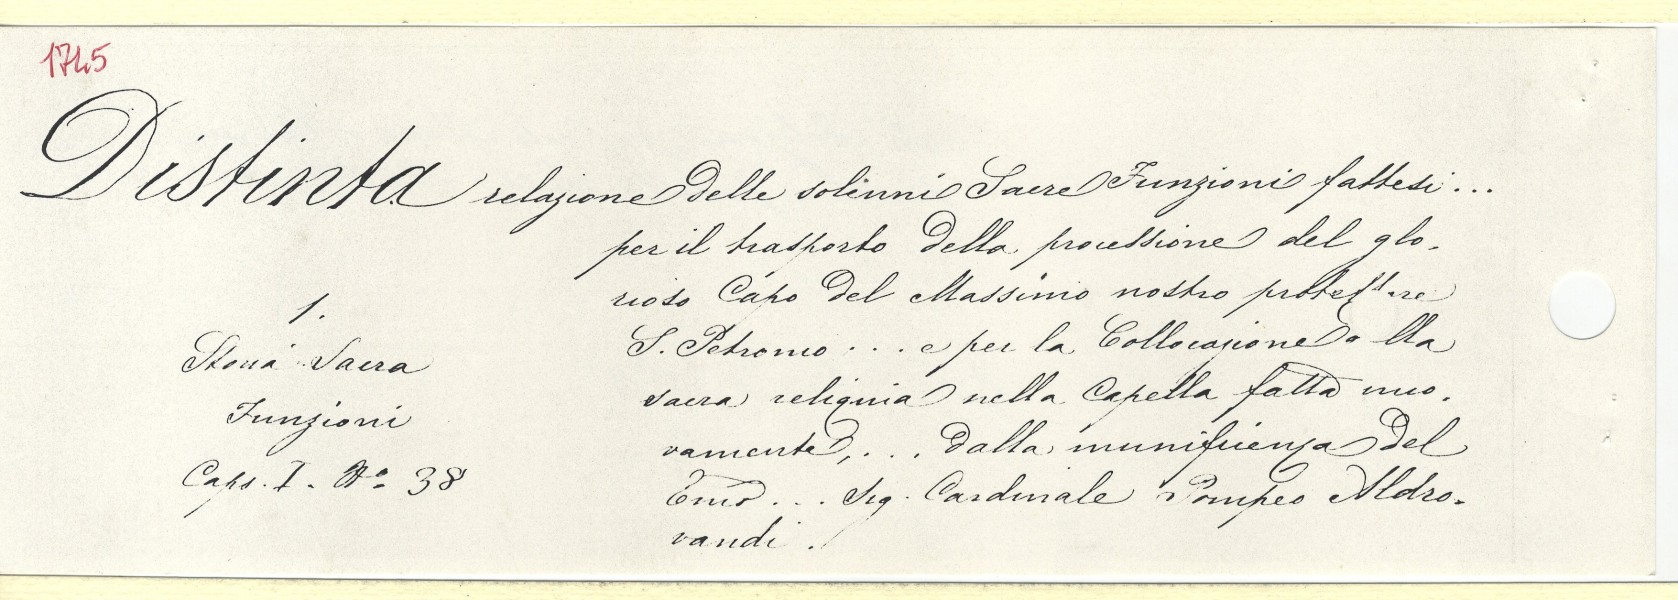 1745
Distinta relazione delle solenni Sacre Funzioni fattesi...
per il trasporto della processione del glo-
rioso Capo del Massimo nostro protettore
S. Petronio ... e per la Collocazione della
sacra reliquia nella Capella fatta nuo-
vamente, ... dalla munificienza del
Emo ... Sig. Cardinale Pompeo Aldro-
vandi.
1.
Storia Sacra
Funzioni
Caps. I. No 38